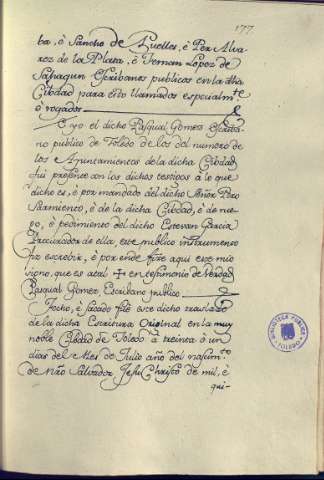 177
ba, è Sancho de Cuellar, è Per Alva-
rez de la Plata, è Ternan Lopez de
Sahagun Escribanos publicos en la dha
Cibdad para esto llamados especialm.te
è rogados
E yo el dicho Pasqual Gomez Escriba-
no publico de Toledo de los del numero de
los Ayuntamientos de la dicha Cibdad,
fui presente con los dichos testigos à lo que
dicho es, è por mandado del dicho Señor Pero
Sarmiento, è de la dicha Cibdad, è de rue-
go, è pedimento del dicho Estevan Garcia
Procurador de ella, este publico instrumento
fiz escrebir, è por ende fize aqui este mio
signo, que es atal ✝ en testimonio de Verdad
Pasqual Gomez Escribano publico
Fecho, è sacado fue este dicho traslado
de la dicha Escritura Original en la muy
noble Cibdad de Toledo à treinta è un
dias del Mes de Julio año del nasim.to
de Ntro Salvador Jesu Christo de mil, è
qui-
BIBLIOTECA PUBLICA
TOLEDO